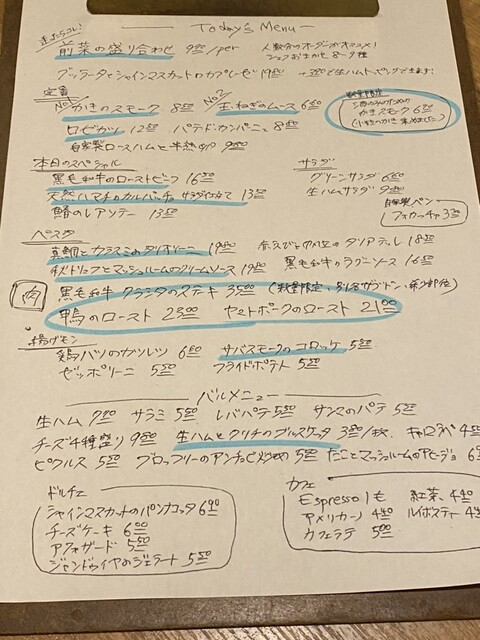 Today's Menu
まよったらコレ!
前菜の盛り合わせ 9⁰⁰/per 人数分のオーダーがオススメ!
シェフおまかせ 8〜9種
ブッラータとシャインマスカットのカプレーゼ 19⁸⁰ +3⁰⁰で生ハムトッピングできます!
定番
No.1 かきのスモーク 8⁰⁰ No.2 玉ねぎのムース 6⁰⁰
数量限定
かきスモーク 6⁸⁰
ロゼカツ 12⁰⁰ パテドカンパーニュ 8⁰⁰
自家製ロースハムと半熟卵 9⁰⁰
本日のスペシャル
黒毛和牛のローストビーフ 16⁰⁰
天然ハマチのカルパッチョ サラダ仕立て 13⁰⁰
鰆のレアソテー 13⁰⁰
サラダ
グリーンサラダ 6⁰⁰
生ハムサラダ 9⁰⁰
自家製パン
フォカッチャ 3⁰⁰
パスタ
真鯛とカラスミのタリオリーニ 19⁰⁰ タリアテッレ 18⁰⁰
マッシュルームのクリームソース 19⁰⁰ 黒毛和牛のラグーソース 16⁰⁰
肉
黒毛和牛クラシタのステーキ 35⁰⁰
鴨のロースト 23⁰⁰ ヤマトポークのロースト 21⁰⁰
揚げモン
鶏ハツのカツレツ 6⁰⁰ サバスモークのコロッケ 5⁰⁰
ゼッポリーニ 5⁰⁰ フライドポテト 5⁰⁰
バルメニュー
生ハム 7⁰⁰ サラミ 5⁰⁰ レバパテ 5⁰⁰ サンマのパテ 5⁰⁰
チーズ4種盛り 9⁰⁰ 生ハムとクリチのブルスケッタ 3⁰⁰/1枚 キャロラペ 4
ピクルス 5⁰⁰ ブロッコリーのアンチョビ炒め 5⁰⁰ たことマッシュルームのアヒージョ 6
ドルチェ
シャインマスカットのパンナコッタ 6⁰⁰
チーズケーキ 6⁰⁰
アフォガード 5⁰⁰
ジャンドゥイヤのジェラート 5⁰⁰
カフェ
Espresso 1€ 紅茶 4⁴⁰
アメリカーノ 4⁰⁰ ルイボスティー 4⁴⁰
カフェラテ 5⁰⁰